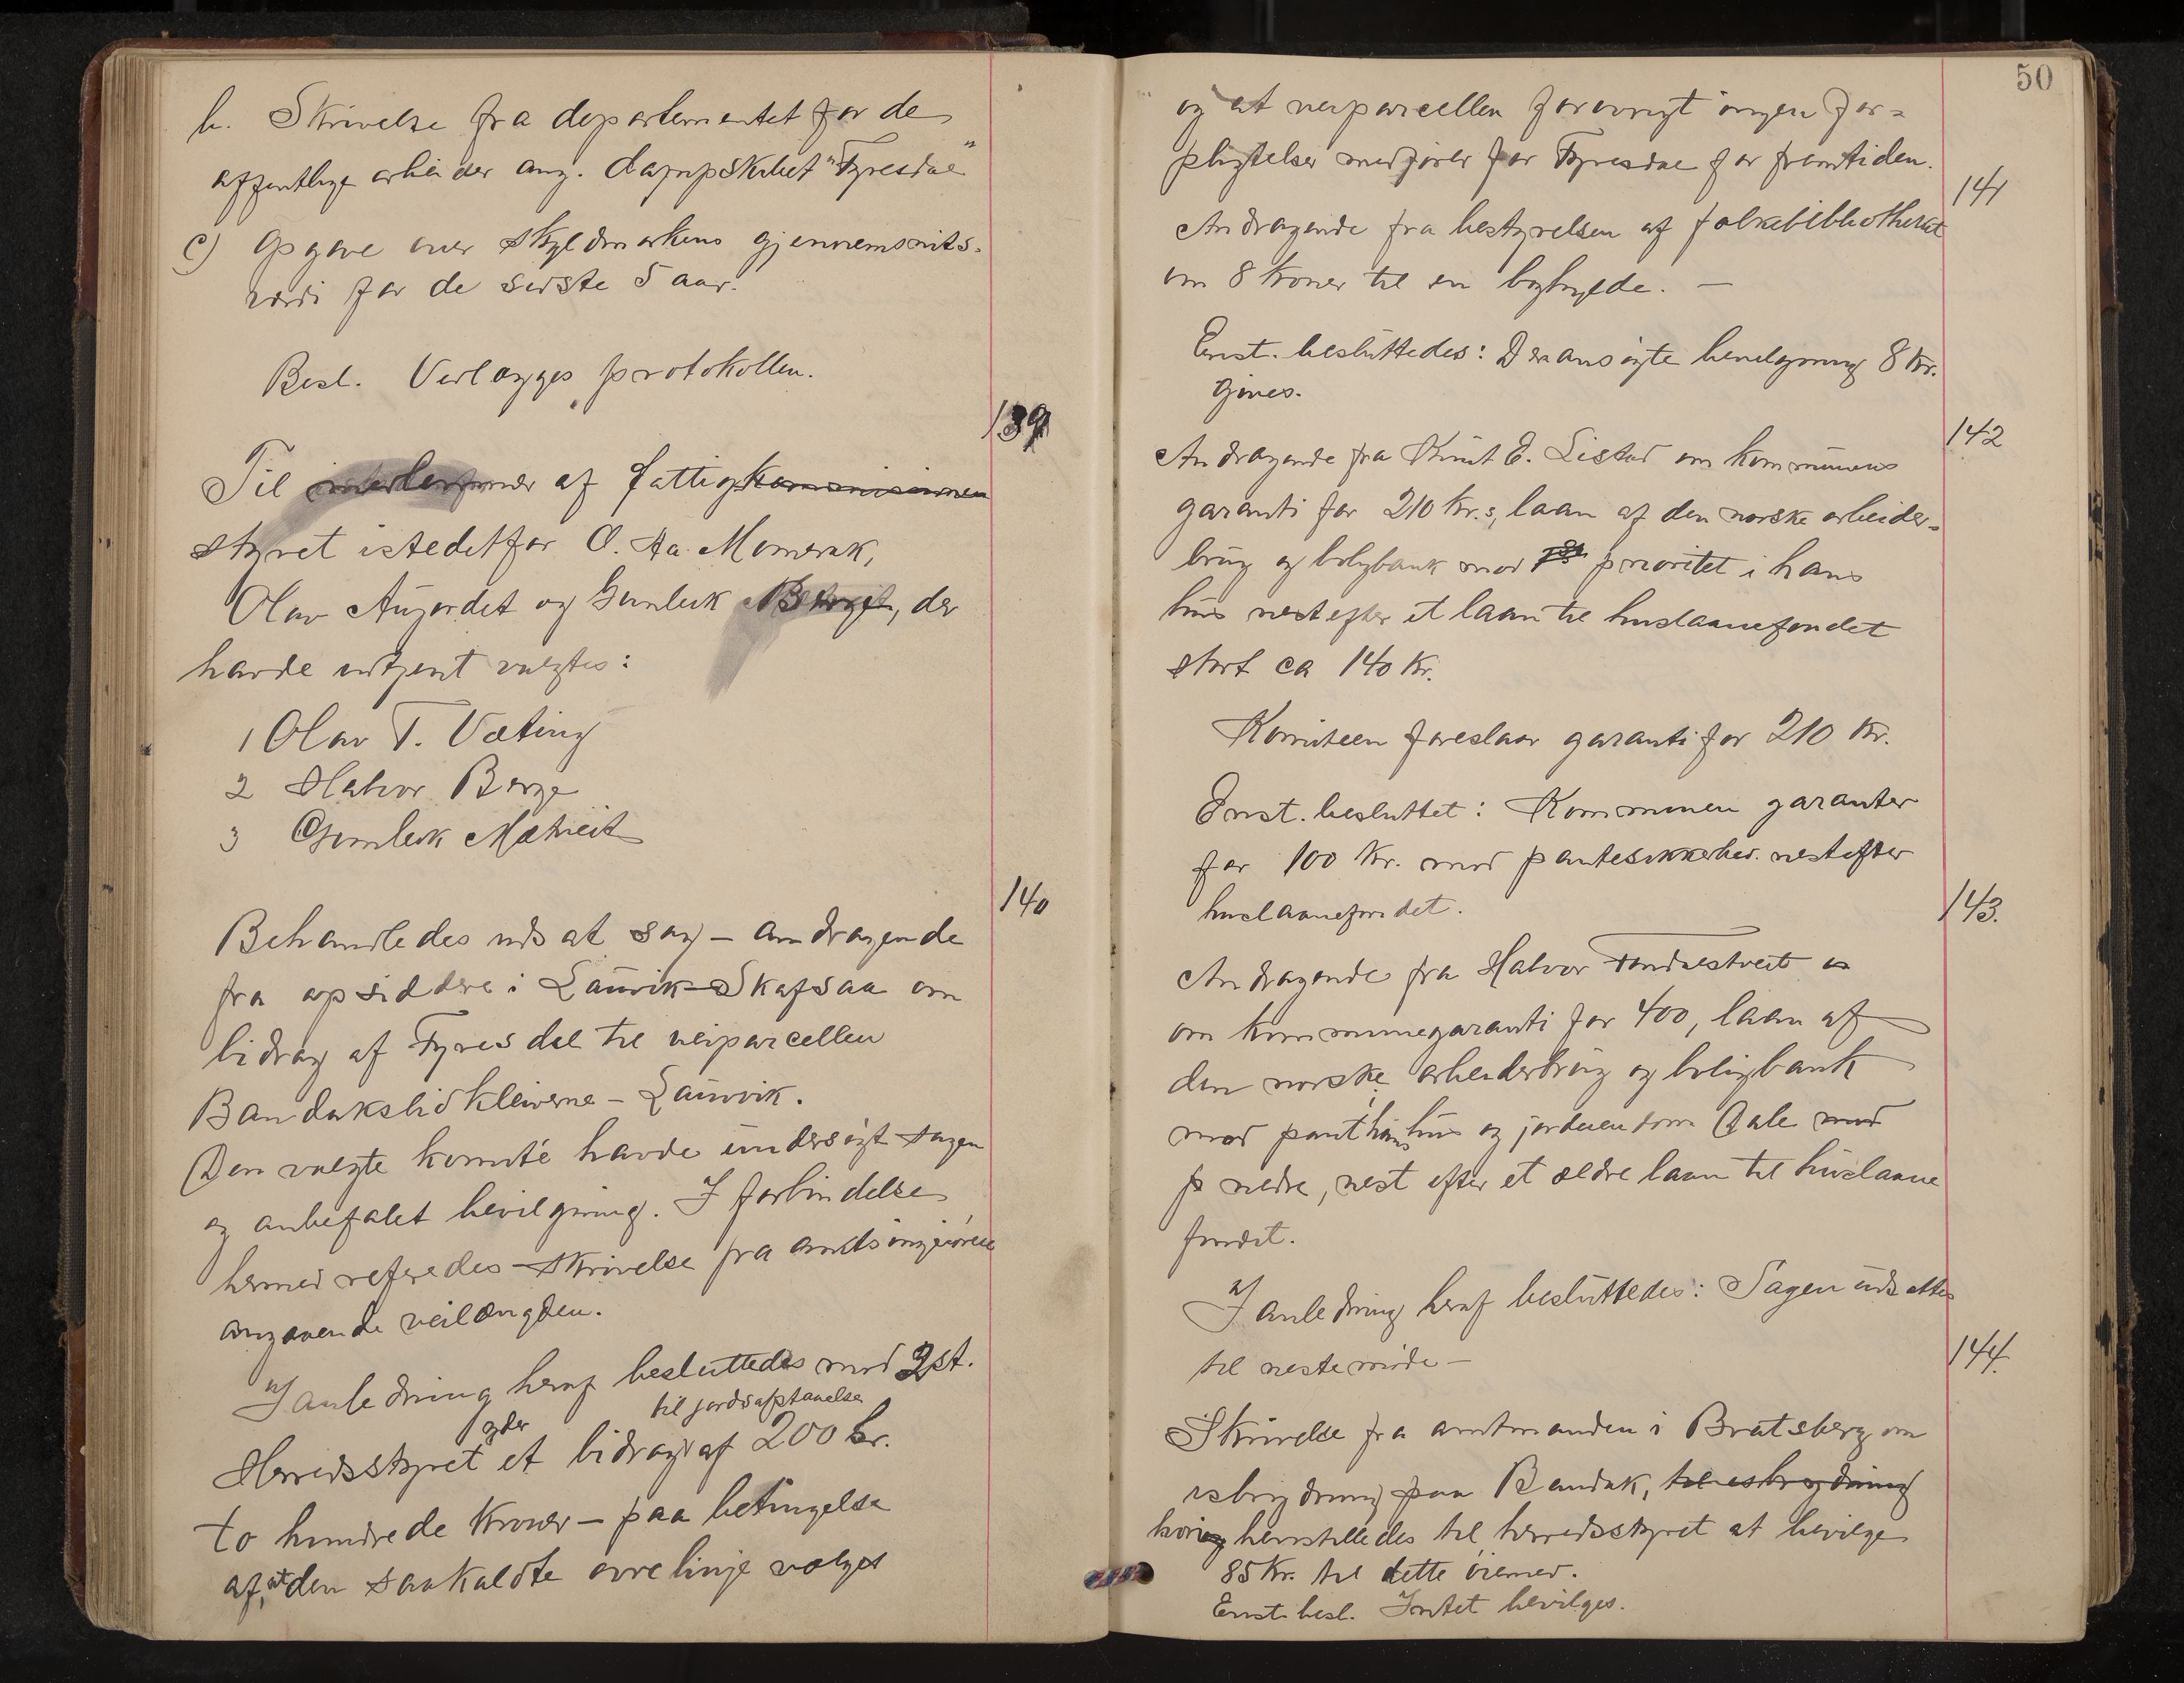 b. Skrivelse fra departementet for de
offentlige arbeider ang. dampskibet "Tyresdøl"
c) Opgave over skyldmarkens gjennemsnits-
værdi for de sidste 5 aar.
Besl. Vedlægges protokollen.
139
Til medlemmer af fattigkommisionen
styret istedetfor O. Aa. Momrak,
Olav Aujordet og Gunleik, der
havde udtjent valgtes:
1 Olav T. Væting
2 Halvor Berge
3 Gunleik Mætveit
140
Behandledes uds at sag - andragende
fra opsiddere i Lauvik-Skafsaa om
bidrag af Tyresdal til veiparcellen
Bandakslidkleivene - Lauvik.
Den valgte komité havde undersøgt sagen
og anbefalet bevilgning. I forbindelse
hermed referedes skrivelse fra amtsingeniøren
angaaende veilængden.
I anledning heraf besluttedes mod 2 st.
Herredsstyret yder et bidrag til jordafstaaelse af 200 kr.
to hundrede kroner - paa betingelse
af, at den saakaldte øvre linje vælges
50
og at veiparcellen forøvrigt ingen for=
pligtelser medfører for Tyresdøl for fremtiden.
141
Andragende fra bestyrelsen af folkebibliotheket
om 8 kroner til en boghylde. —
Enst. besluttedes: Den ansøgte bevilgning 8 kr.
gives.
142
Andragende fra Knut E. Listad om kommunens
garanti for 210 kr.s, laan af den norske arbeider=
brug og boligbank mod 1ste prioritet i hans
hus næst efter et laan til huslaanefondet
stort ca 140 kr.
Komiteen foreslaar garanti for 210 kr.
Enst. besluttet: Kommunen garanter
for 100 kr. mod pantesikkerhed næst efter
huslaanefondet.
143.
Andragende fra Halvor Tondrestveit
om kommunegaranti for 400, laan af
den norske arbeiderbrug og boligbank
mod pant i hans hus og jordeiendom Dale med
p nedre, næst efter et ældre laan til huslaane
fondet.
I anledning heraf besluttedes: Sagen udsættes
til næste møde —
144.
Skrivelse fra amtmanden i Bratsberg om
isbrydning paa Bandak, til isbrydning
hvori henstilledes til herredsstyret at bevilge
85 kr. til dette øiemed.
Enst. besl. Intet bevilges.